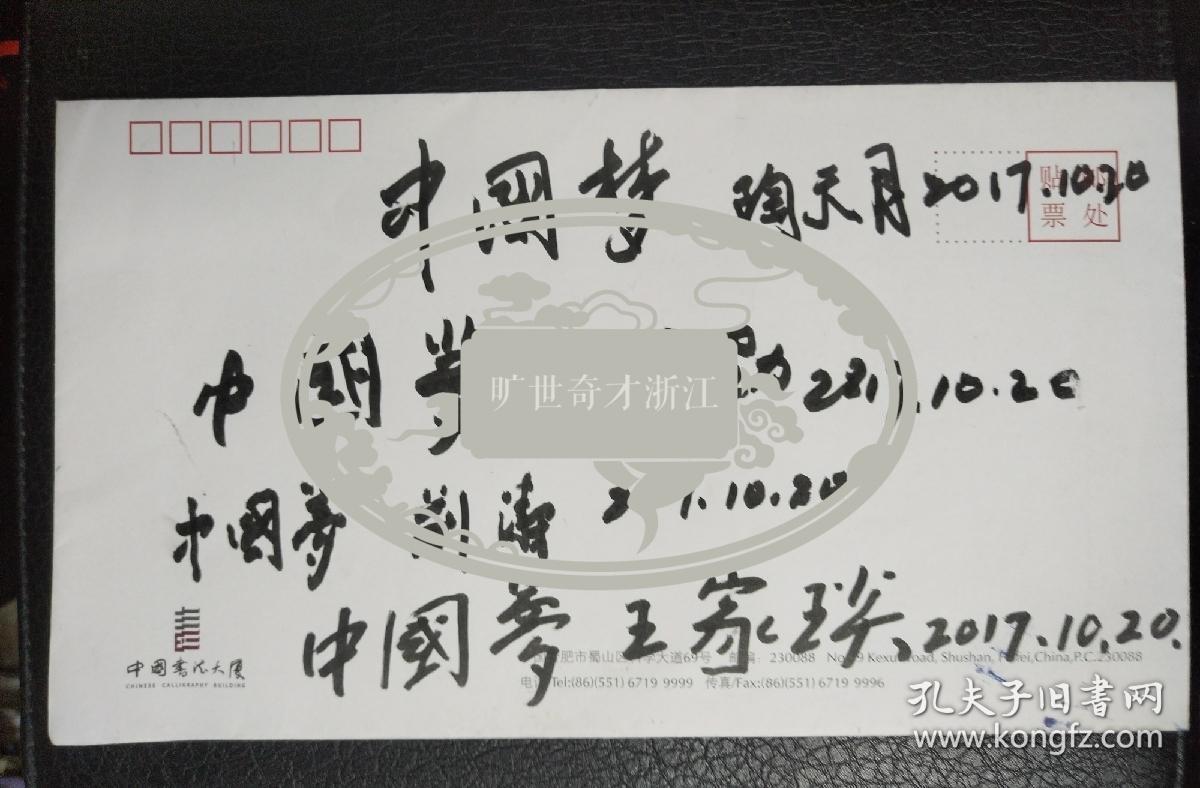 中國夢 陶天月 2017.10.20
贴邮
票处
中国梦 2017.10.20
旷世奇才浙江
中國夢 刘涛 10.20
中國夢 王家琰 2017.10.20.
中國書法大厦
CHINESE CALLIGRAPHY BUILDING
肥市蜀山区科学大道69号 邮编: 230088 No.69 Kexue Road, Shushan, Hefei,China,P.C.230088
电话/Tel:(86)(551) 6719 9999 传真/Fax:(86)(551) 6719 9996
孔夫子旧书网
www.kongfz.com